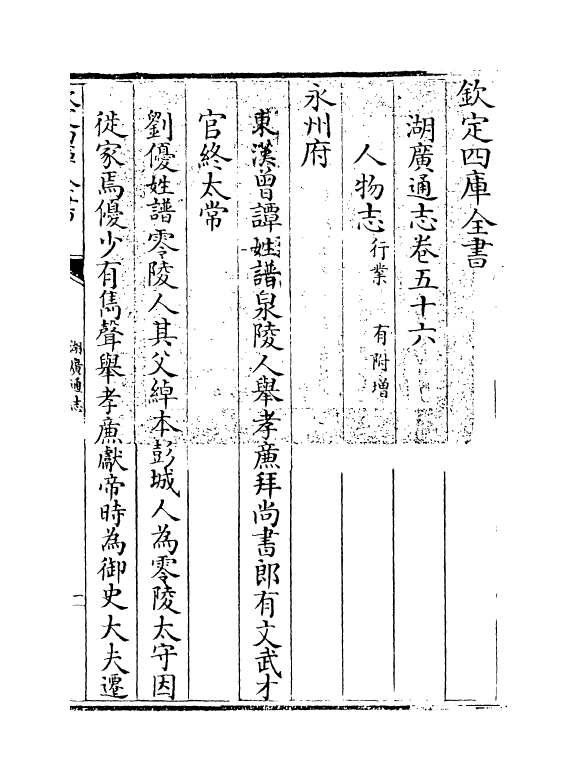 欽定四庫全書
湖廣通志卷五十六
人物志 行業 有附增
永州府
東漢曾譚姓譜泉陵人舉孝廉拜尚書郎有文武才
官終太常
劉優姓譜零陵人其父綽本彭城人為零陵太守因
徙家焉優少有雋聲舉孝廉獻帝時為御史大夫遷
湖廣通志